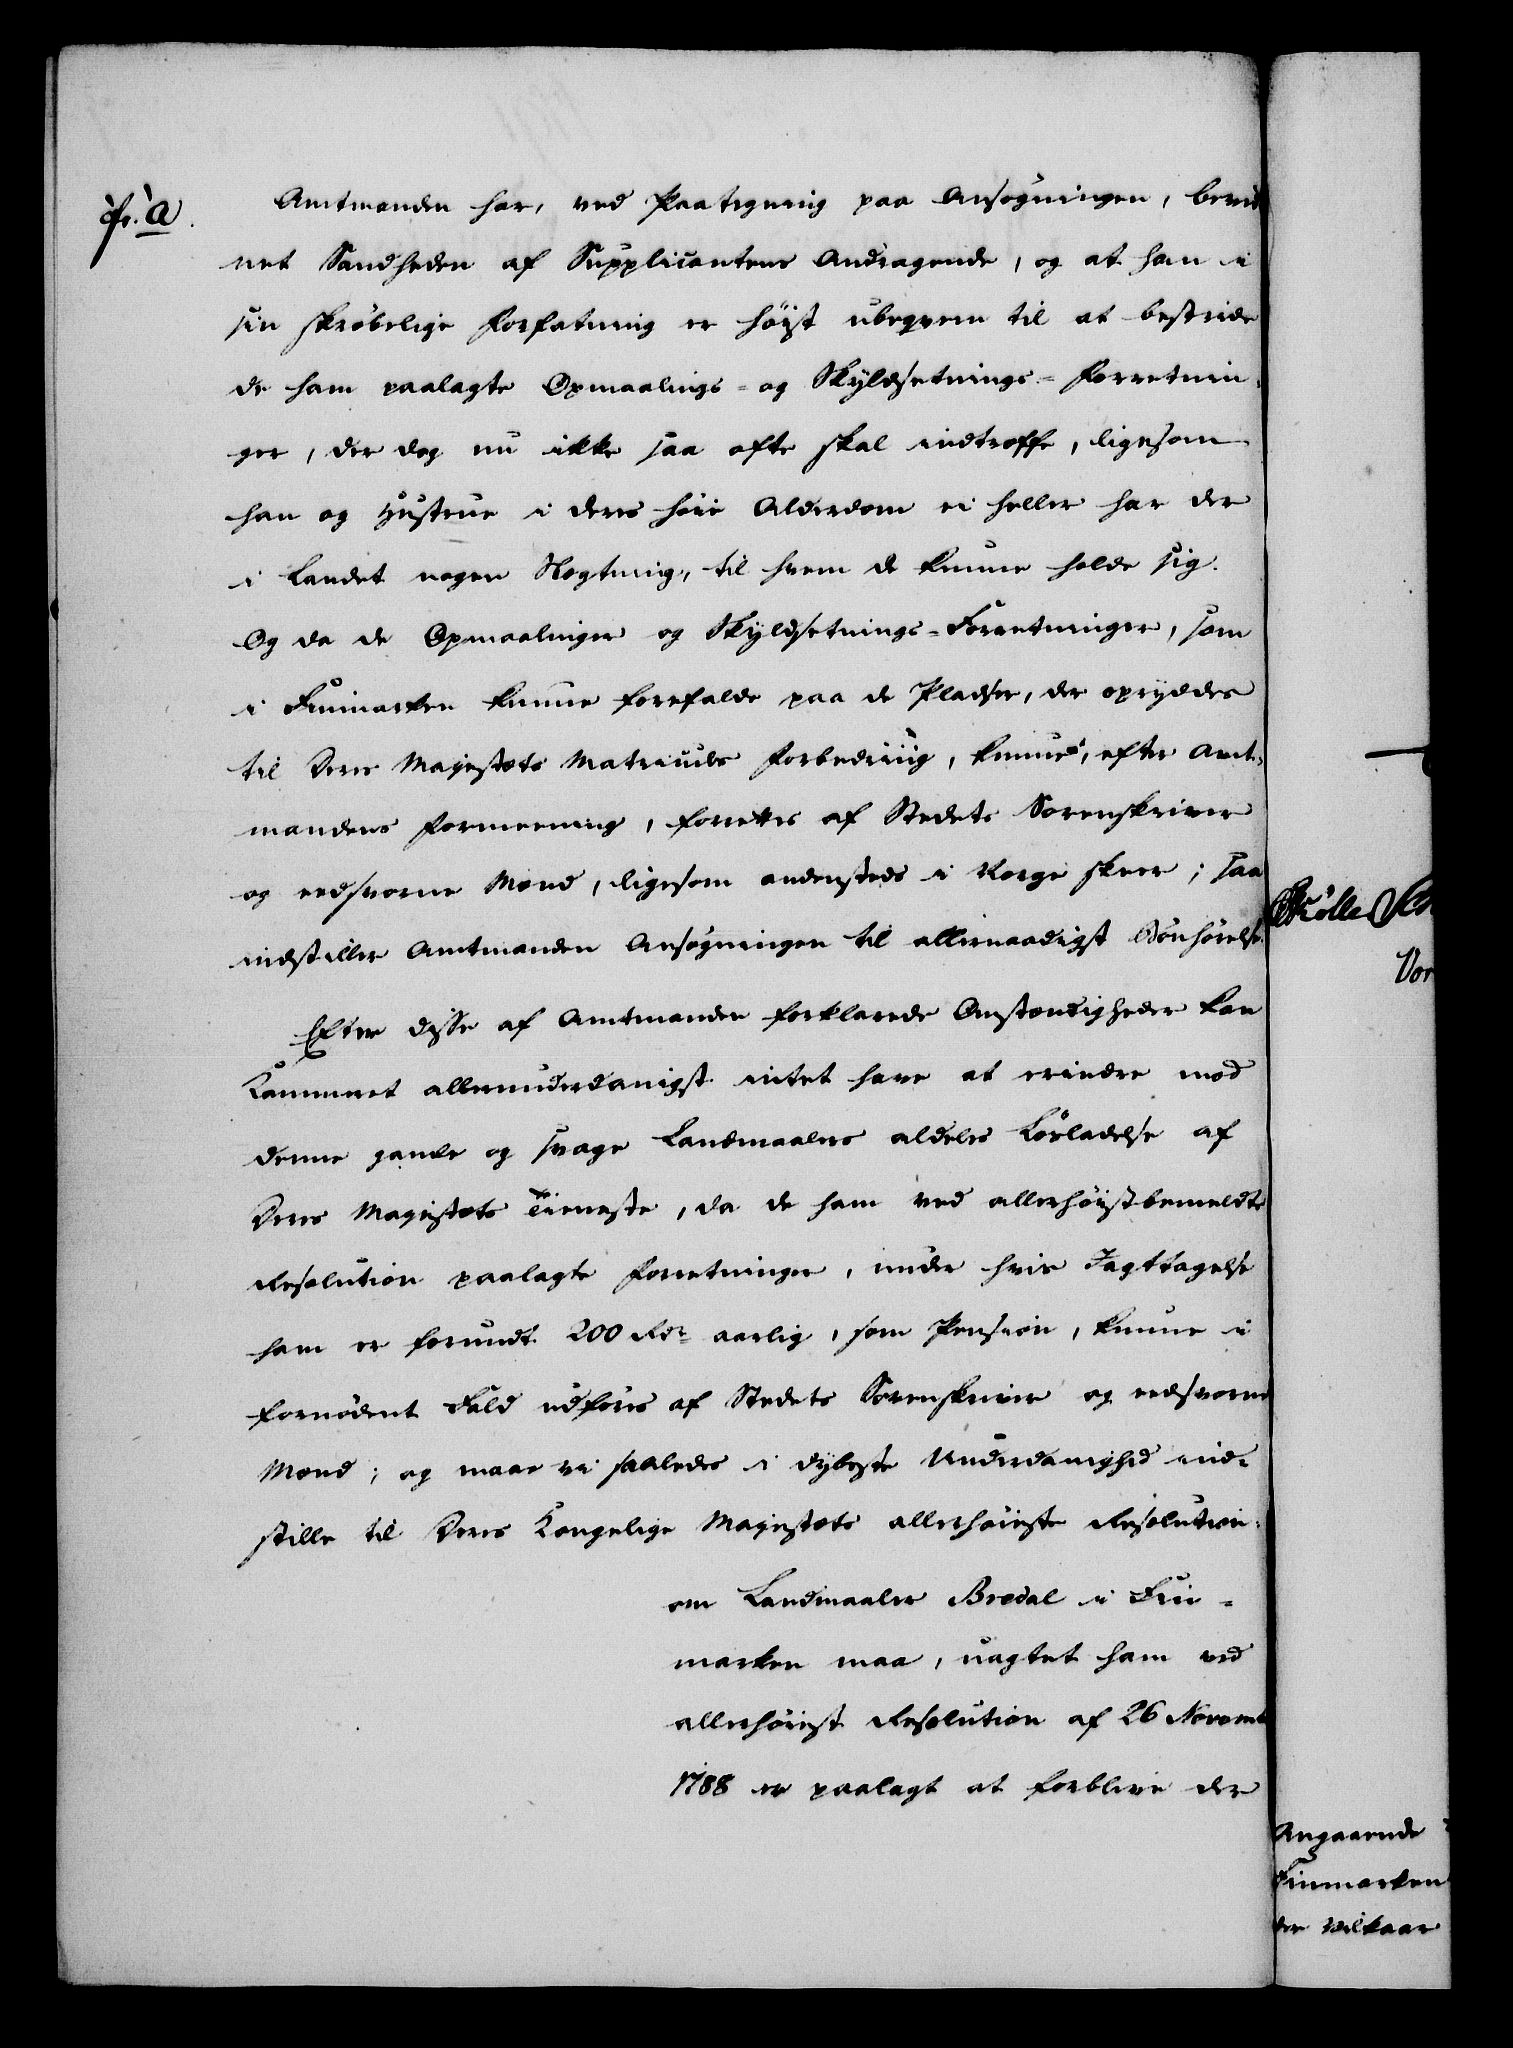 fr. a.
Amtmanden har, ved Paategning paa Ansøgningen, bevid
net Sandheden af Supplicantens Andragende, og at han i
sin skrøbelige Forfatning er høyst ubeqvem til at bestride
de ham paalagte Opmaalings- og Skyldsetnings-Forretnin-
ger, der dog nu ikke saa ofte skal indtreffe, ligesom
han og Hustrue i deres høie Alderdom ei heller har der
i Landet nogen Slægtning, til hvem de kunne holde sig.
Og da de Opmaalinger og Skyldsetnings-Forretninger, som
i Finmarken kunne forefalde paa de Pladser, der opryddes
til Deres Majestæts Matriculs Forbedring, kunne, efter Amt-
mandens Formeening, forrettes af Stedets Sorenskriver
og eedsvorne Mænd, ligesom andensteds i Norge skeer; saa
indstiller Amtmanden Ansøgningen til allernaadigst Bønhørelse.
Efter disse af Amtmanden forklarede Omstændigheder kan
Kammeret allerunderdanigst intet have at erindre mod
denne gamle og svage Landmaalers aldeles Løsladelse af
Deres Majestæts Tieneste, da de ham ved allerhøistbemeldte
Resolution paalagte Forretninger, under hvis Jagttagelse
ham er forundt 200 Rdr aarlig, som Pension, kunne i
fornødent Fald udføres af Stedets Sorenskriver og eedsvorne
Mænd; og maae vi saaledes i dybeste Underdanighed ind-
stille til Deres Kongelige Majestæts allerhøieste Resolution:
om Landmaaler Bredal i Fin-
marken maa, uagtet ham ved
allerhøiest Resolution af 26 Novemb
1788 er paalagt at forblive der
Vor
Angaaende
Finmarken
der Vilkaar